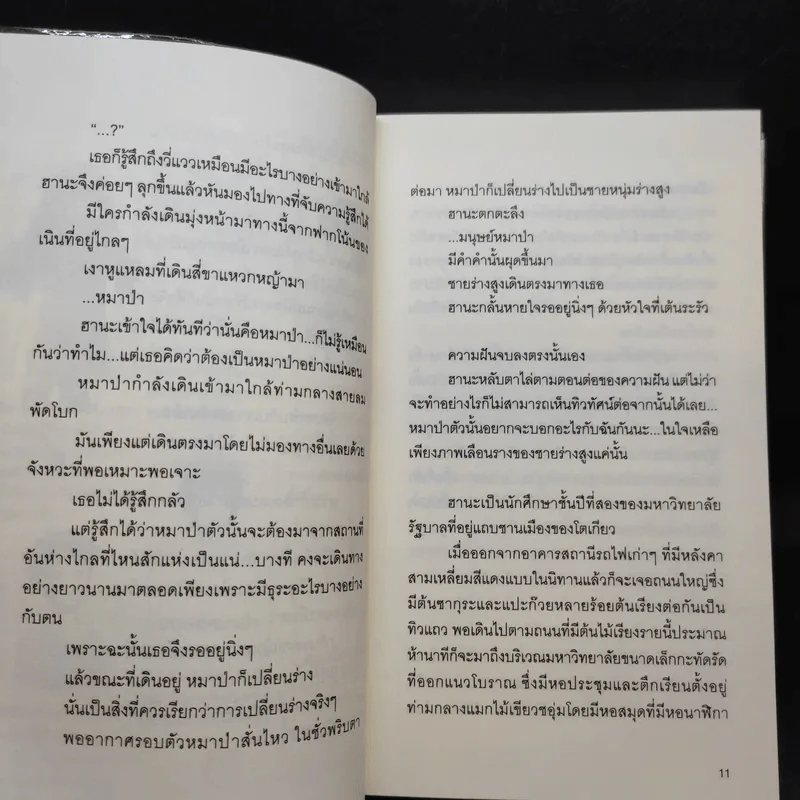 “...?”
เธอก็รู้สึกถึงวี่แววเหมือนมีอะไรบางอย่างเข้ามาใกล้
ฮานะจึงค่อยๆ ลุกขึ้นแล้วหันมองไปทางที่จับความรู้สึกได้
มีใครกำลังเดินมุ่งหน้ามาทางนี้จากฟากโน้นของ
เนินที่อยู่ไกลๆ
เงาหูแหลมที่เดินสี่ขาแหวกหญ้ามา
...หมาป่า
ฮานะเข้าใจได้ทันทีว่านั่นคือหมาป่า...ก็ไม่รู้เหมือน
กันว่าทำไม...แต่เธอคิดว่าต้องเป็นหมาป่าอย่างแน่นอน
หมาป่ากำลังเดินเข้ามาใกล้ท่ามกลางสายลม
พัดโบก
มันเพียงแต่เดินตรงมาโดยไม่มองทางอื่นเลยด้วย
จังหวะที่พอเหมาะพอเจาะ
เธอไม่ได้รู้สึกกลัว
แต่รู้สึกได้ว่าหมาป่าตัวนั้นจะต้องมาจากสถานที่
อันห่างไกลที่ไหนสักแห่งเป็นแน่...บางที คงจะเดินทาง
อย่างยาวนานมาตลอดเพียงเพราะมีธุระอะไรบางอย่าง
กับตน
เพราะฉะนั้นเธอจึงรออยู่นิ่งๆ
แล้วขณะที่เดินอยู่ หมาป่าก็เปลี่ยนร่าง
นั่นเป็นสิ่งที่ควรเรียกว่าการเปลี่ยนร่างจริงๆ
พออากาศรอบตัวหมาป่าสั่นไหว ในชั่วพริบตา
ต่อมา หมาป่าก็เปลี่ยนร่างไปเป็นชายหนุ่มร่างสูง
ฮานะตกตะลึง
...มนุษย์หมาป่า
มีคำคำนั้นผุดขึ้นมา
ชายร่างสูงเดินตรงมาทางเธอ
ฮานะกลั้นหายใจรออยู่นิ่งๆ ด้วยหัวใจที่เต้นระรัว
ความฝันจบลงตรงนั้นเอง
ฮานะหลับตาไล่ตามตอนต่อของความฝัน แต่ไม่ว่า
จะทำอย่างไรก็ไม่สามารถเห็นทิวทัศน์ต่อจากนั้นได้เลย...
หมาป่าตัวนั้นอยากจะบอกอะไรกับฉันกันนะ...ในใจเหลือ
เพียงภาพเลือนรางของชายร่างสูงแค่นั้น
ฮานะเป็นนักศึกษาชั้นปีที่สองของมหาวิทยาลัย
รัฐบาลที่อยู่แถบชานเมืองของโตเกียว
เมื่อออกจากอาคารสถานีรถไฟเก่าๆ ที่มีหลังคา
สามเหลี่ยมสีแดงแบบในนิทานแล้วก็จะเจอถนนใหญ่ซึ่ง
มีต้นซากุระและแปะก๊วยหลายร้อยต้นเรียงต่อกันเป็น
ทิวแถว พอเดินไปตามถนนที่มีต้นไม้เรียงรายนี้ประมาณ
ห้านาทีก็จะมาถึงบริเวณมหาวิทยาลัยขนาดเล็กกะทัดรัด
ที่ออกแนวโบราณ ซึ่งมีหอประชุมและตึกเรียนตั้งอยู่
ท่ามกลางแมกไม้เขียวชอุ่มโดยมีหอสมุดที่มีหอนาฬิกา
11